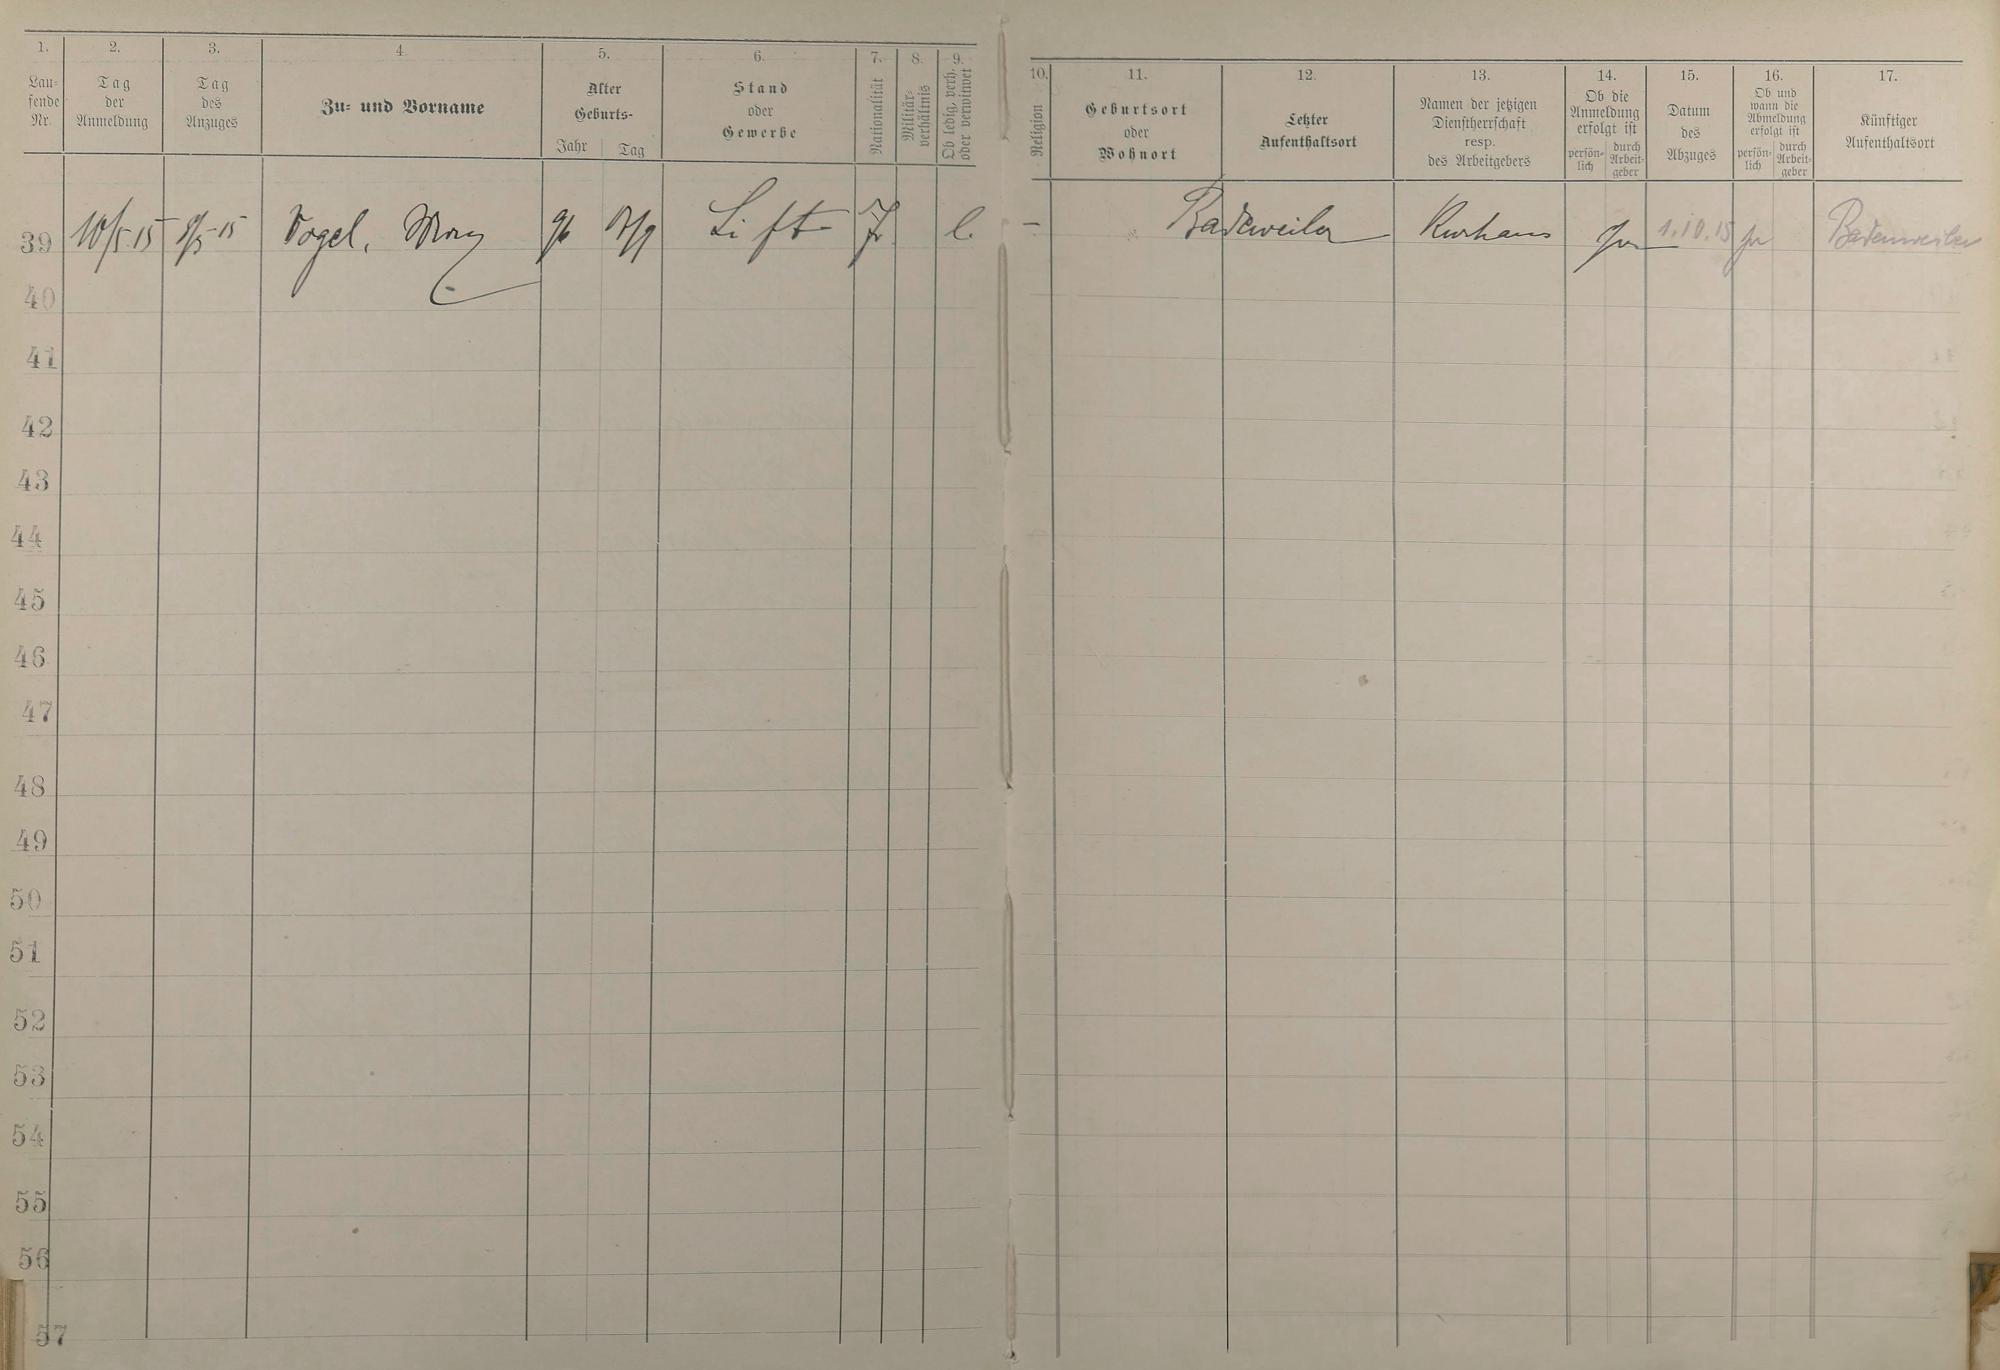 1. 2. 3. 4. 5. 6. 7. 8. 9. 10. 11. 12. 13. 14. 15. 16. 17.
Lau-
fende
Nr.
Tag
der
Anmeldung
Tag
des
Anzuges
Zu- und Vorname
Alter
Geburts-
Jahr Tag
Stand
oder
Gewerbe
Nationalität
Militär-
verhältnis
Ob ledig, verh.
oder verwitwet
Religion
Geburtsort
oder
Wohnort
Letzter
Aufenthaltsort
Namen der jetzigen
Dienstherrschaft
resp.
des Arbeitgebers
Ob die
Anmeldung
erfolgt ist
persön-
lich
durch
Arbeit-
geber
Datum
des
Abzuges
Ob und
wann die
Abmeldung
erfolgt ist
persön-
lich
durch
Arbeit-
geber
Künftiger
Aufenthaltsort
39 10/5 15 9/5 15 Vogel, Lift l. – Badeweiler Kurhaus 1.10.15 Badenweiler
40
41
42
43
44
45
46
47
48
49
50
51
52
53
54
55
56
57